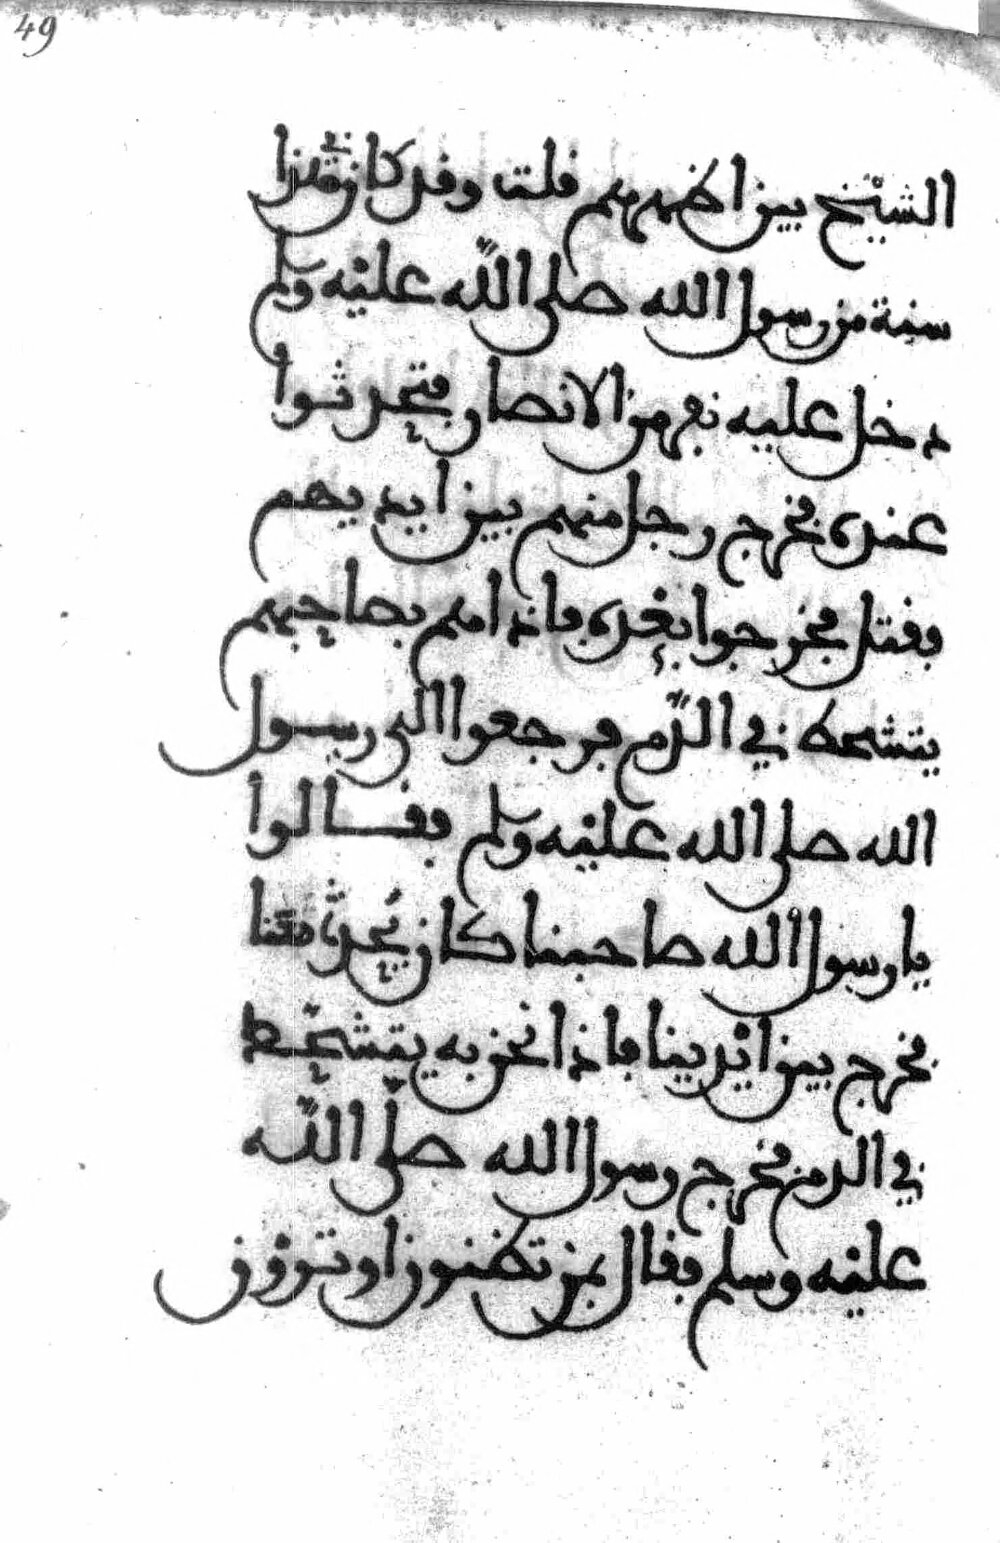 49
الشيخ بين اظهرهم قلت وقد كان في هذا
سنة من رسول الله صلى الله عليه وسلم
دخل عليه نفر من الانصار فتحدثوا
عنده فخرج رجل منهم بين ايديهم
فقتل فخرجوا بعده فاذا هم بصاحبهم
يتشحط في الدم فرجعوا الى رسول
الله صلى الله عليه وسلم فقالوا
يا رسول الله صاحبنا كان يحدث معنا
فخرج بين ايدينا فاذا نحن به يتشحط
في الدم فخرج رسول الله صلى الله
عليه وسلم فقال بمن تظنون او ترون